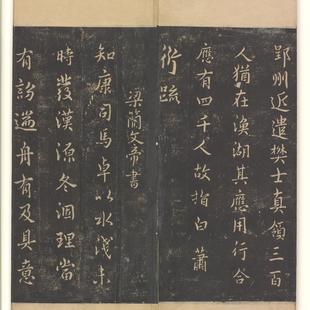 郢州近遣樊士真領三百
人猶在渙湖其應用行合
應有四千人故指白 蕭
衍疏
梁簡文帝書
知康司馬卓以水淺未
時發漢源冬涸理當
有訪遄舟有及具意